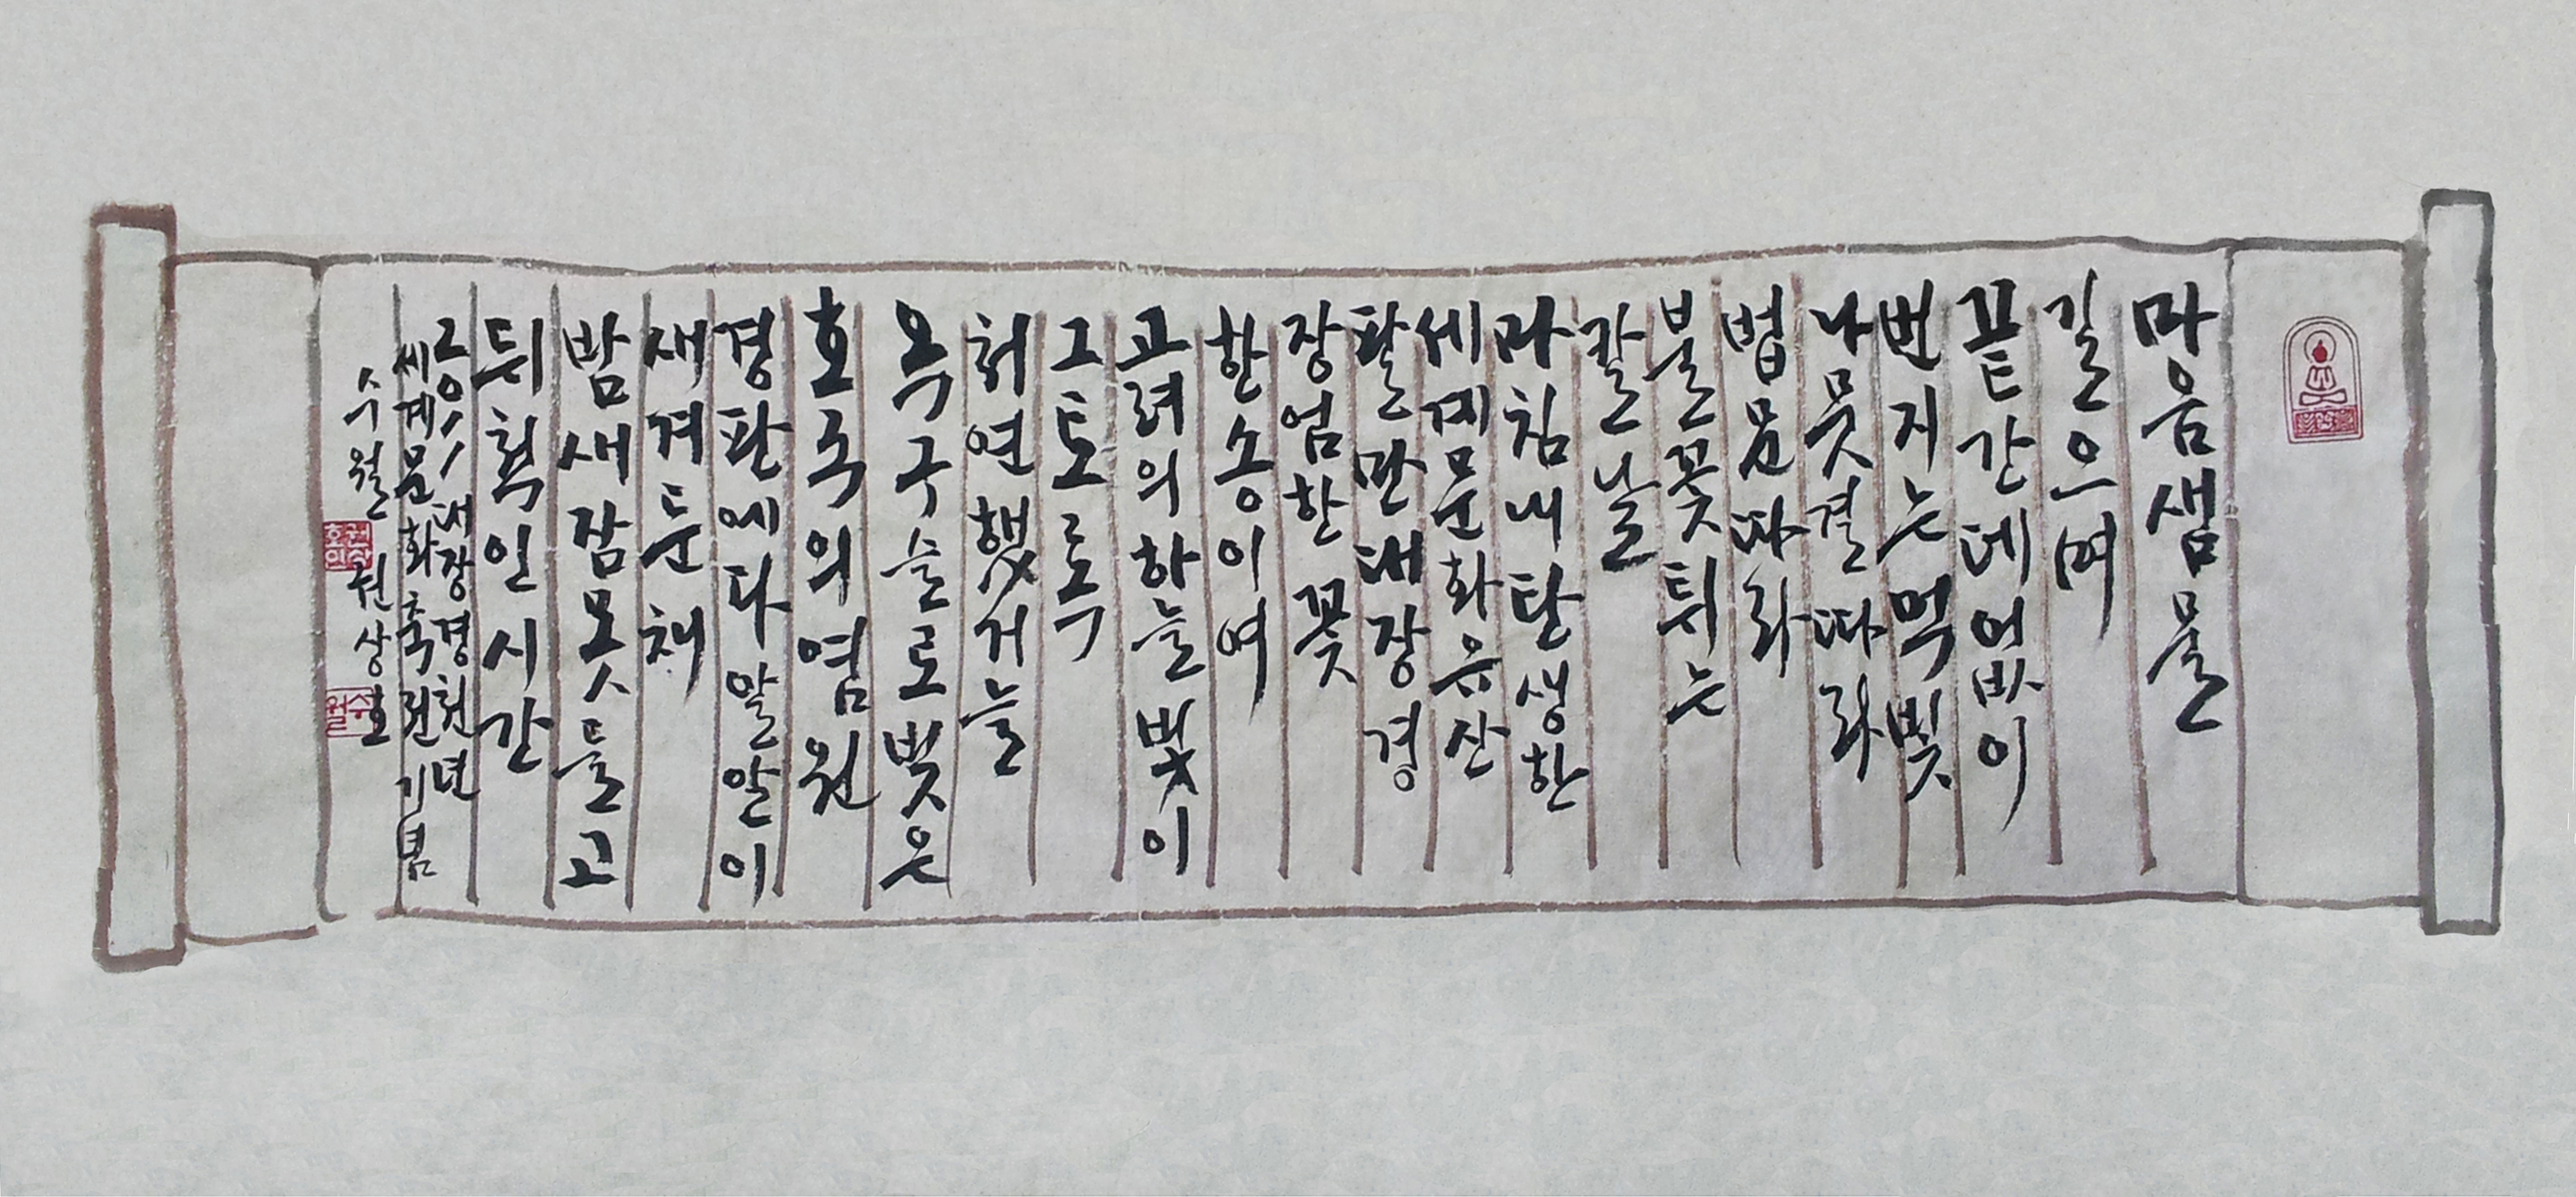 마음샘물
길으며
끝간데없이
번지는먹빛
나뭇결따라
법문따라
불꽃튀는
칼날
마침내탄생한
세계문화유산
팔만대장경
장엄한꽃
한송이여
고려의하늘빛이
그토록
처연했거늘
옥구슬로빚은
호국의염원
경판에다알알이
새겨둔채
밤새잠못들고
뒤척인시간
2011대장경천년
세계문화축전기념
수월 권상호
권상호인
수월